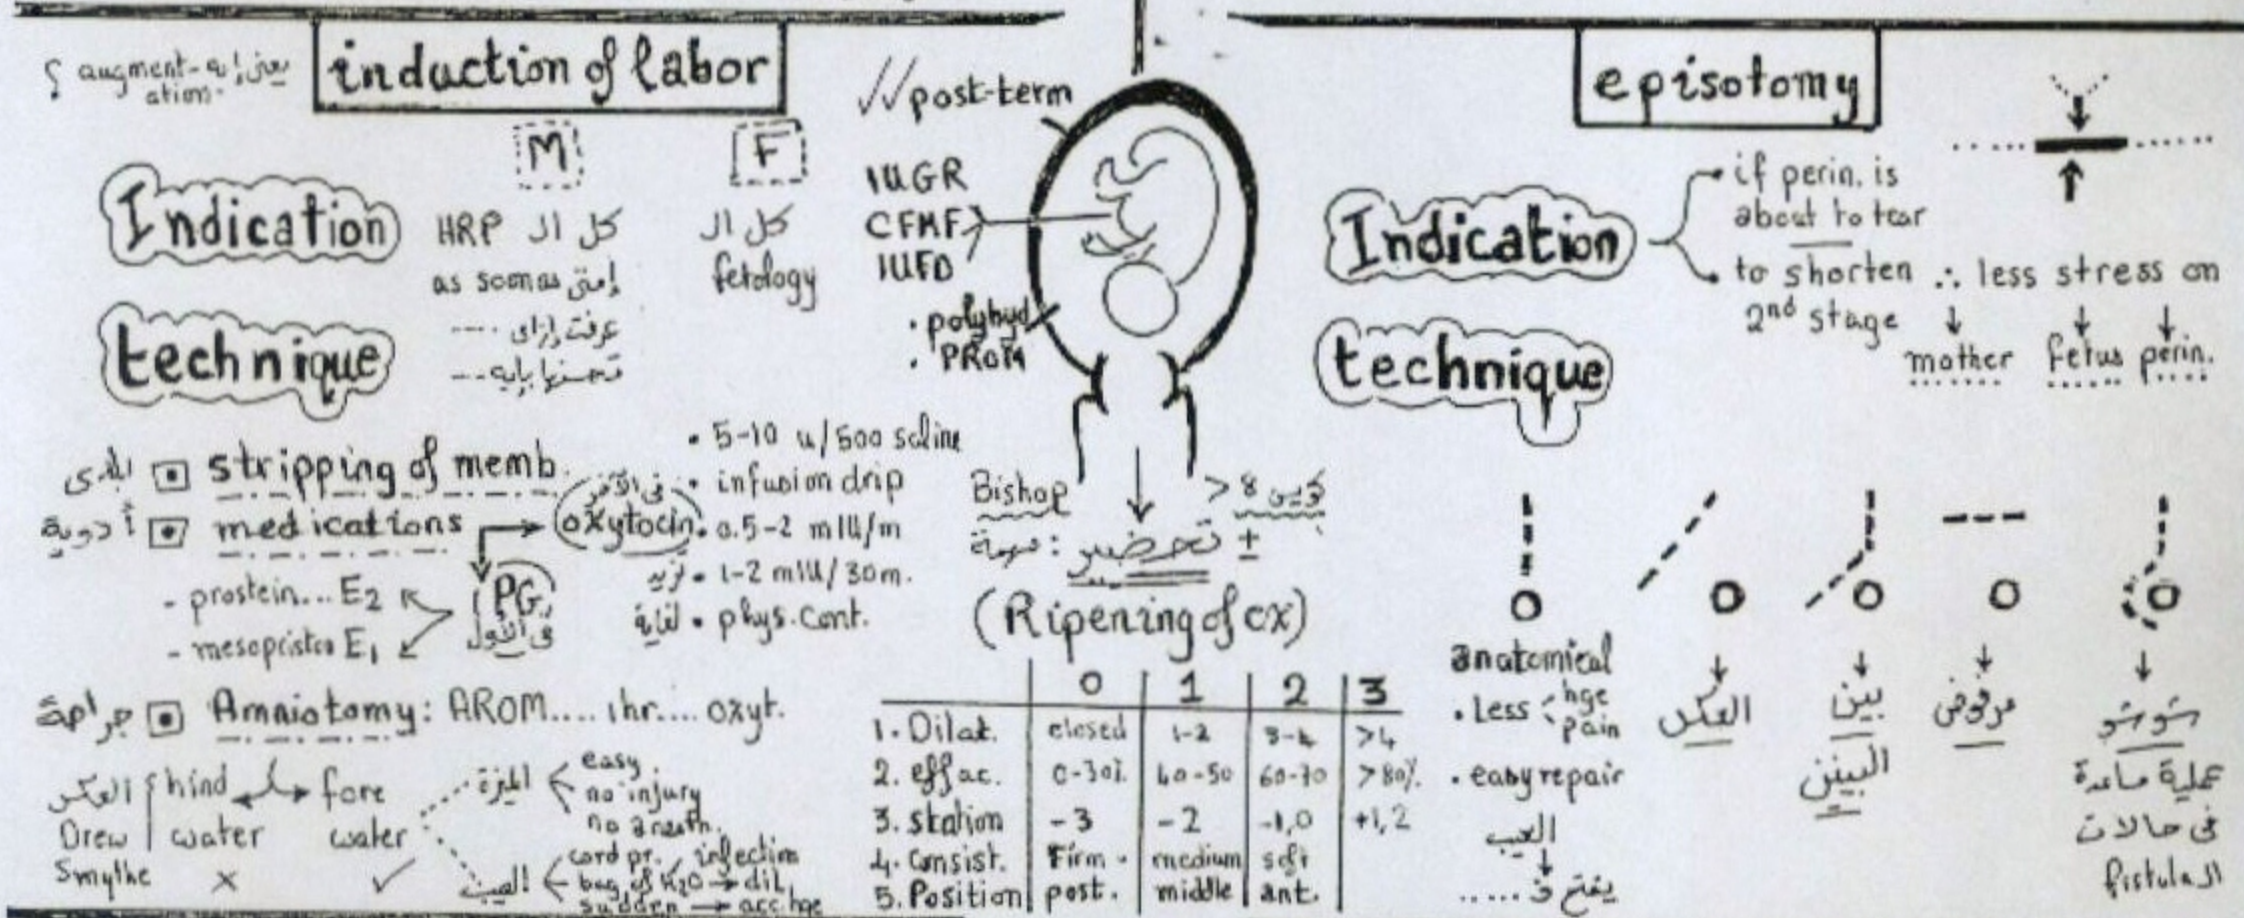 ؟ augment-ation يعني إيه
induction of labor
M
F
Indication
كل ال HRP
as soon as إمتى
عرفت إزاى ....
تحسنها بإيه ...
كل ال
fetology
technique
✓✓ post-term
IUGR
CFMF
IUFD
• polyhyd
• PROM
stripping of memb.
أدوية medications
oxytocin
• 5-10 u/500 saline
• infusion drip
• 0.5-2 mIU/m
تزيد • 1-2 mIU/30m.
لغاية • phys. cont.
PG
فى الأول
- prostein... E2
- mesopristco E1
جراحة Amniotomy: AROM.... 1hr.... oxyt.
العكس hind fore
Drew water water
Smythe × ✓
الميزة
easy
no injury
no anesth.
العيب
cord pr. infection
bag of H2O → dil.
sudden → acc. hge
Bishop
كويس 8 <
مهمة : تحضير ±
(Ripening of cx)
0 1 2 3
1. Dilat. closed 1-2 3-4 >4
2. effac. 0-30% 40-50 60-70 >80%
3. station -3 -2 -1,0 +1,2
4. Consist. Firm medium soft
5. Position post. middle ant.
episotomy
Indication
if perin. is
about to tear
to shorten ∴ less stress on
2nd stage
mother fetus perin.
technique
anatomical
• less hge
pain
• easy repair
العيب
يفتح فى .....
العكس
بين
البينين
مرفوض
شوشو
عملية مساعدة
فى حالات
ال fistula